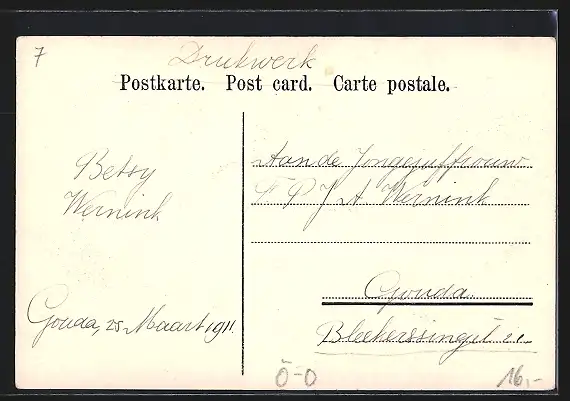 7
Drukwerk
Postkarte. Post card. Carte postale.
Betsy
Wernink
Gouda, 25 Maart 1911
Aan de Jongejuffrouw
F P J A Wernink
Gouda.
Bleekerssingel
Ö-O
16,-